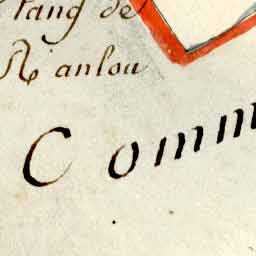 tang de
Ranlou
Comm